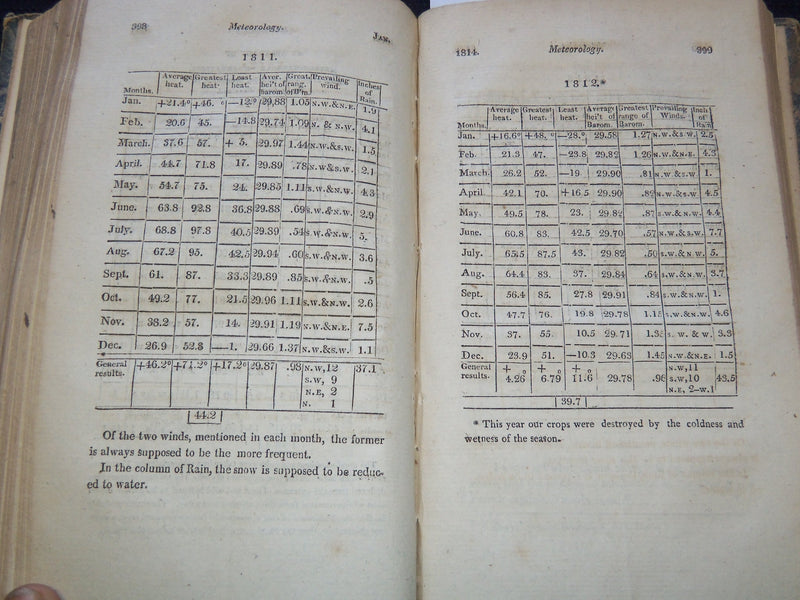 398
Meteorology.
JAN.
1811.
Months. Average heat. Greatest heat. Least heat. Aver. hei't of barom. Great. rang. of B'm. Prevailing wind. Inches of Rain.
Jan. +21.4° +46. ° —12.° 29,88 1.05 N.W.&N.E. 1.9
Feb. 20.6 45. —14.8 29.74 1.09 N. & N.W. 4.1
March. 37.6 57. + 5. 29.97 1.44 N.W.&S.W. 1.5
April. 44.7 71.8 17. 29.89 .78 N.W&S.W. 2.1
May. 54.7 75. 24. 29.85 1.11 S.W.&N.W. 4.3
June. 63.8 92.8 36.8 29.88 .69 S.W.&N.W. 2.9
July. 68.8 97.8 40.5 29.89 .54 S.W.&N.W. 5.
Aug. 67.2 95. 42.5 29.94 .60 S.W.&N.W. 3.6
Sept. 61. 87. 33.3 29.89 .85 S.W.&N.W. .5
Oct. 49.2 77. 21.5 29.96 1.11 S.W.&N.W. 2.6
Nov. 38.2 57. 14. 29.91 1.19 N.W.&N.E. 7.5
Dec. 26.9 52.3 —1. 29.66 1.37 N.W.&S.W. 1.1
General results. +46.2° +74.2° +17.2° 29.87 .98 N.W,12 37.1
S.W, 9
N.E, 2
N. 1
44.2
Of the two winds, mentioned in each month, the former
is always supposed to be the more frequent.
In the column of Rain, the snow is supposed to be reduc-
ed to water.
1814.
Meteorology.
399
1812.*
Months. Average heat. Greatest heat. Least heat. Average hei't of Barom. Greatest range of Barom. Prevailing Winds. Inch of Rain
Jan. +16.6° +48. ° —28.° 29.58 1.27 N.W.&S W. 2.5
Feb. 21.3 47. —23.8 29.82 1.26 N.W.&N.E. 4.3
March. 26.2 52. —19 29.90 .81 N.W.&S.W. 1.
April. 42.1 70. +16.5 29.90 .82 N.W.&S.W. 4.5
May. 49.5 78. 23. 29.82 .87 S.W.&N.W. 4.4
June. 60.8 83. 42.5 29.70 .57 N.W.&S.W. 7.7
July. 65.5 87.5 43. 29.82 .50 S.W.&N.W. 5.
Aug. 64.4 83. 37. 29.84 .64 S.W.&N.W. 3.7
Sept. 56.4 85. 27.8 29.91 .84 S.W.&N.W. 1.
Oct. 47.7 76. 19.8 29.78 S.W.&N.W. 4.6
Nov. 37. 55. 10.5 29.71 S. W. & W. 3.3
Dec. 23.9 51. —10.3 29.63 1.45 N.W.&N.E. 1.5
General + ° + ° + ° N.W,11
results. 4.26 6.79 11.6 29.78 .96 S.W,10 43.5
N.E, 2–W.1
39.7
* This year our crops were destroyed by the coldness and
wetness of the season.